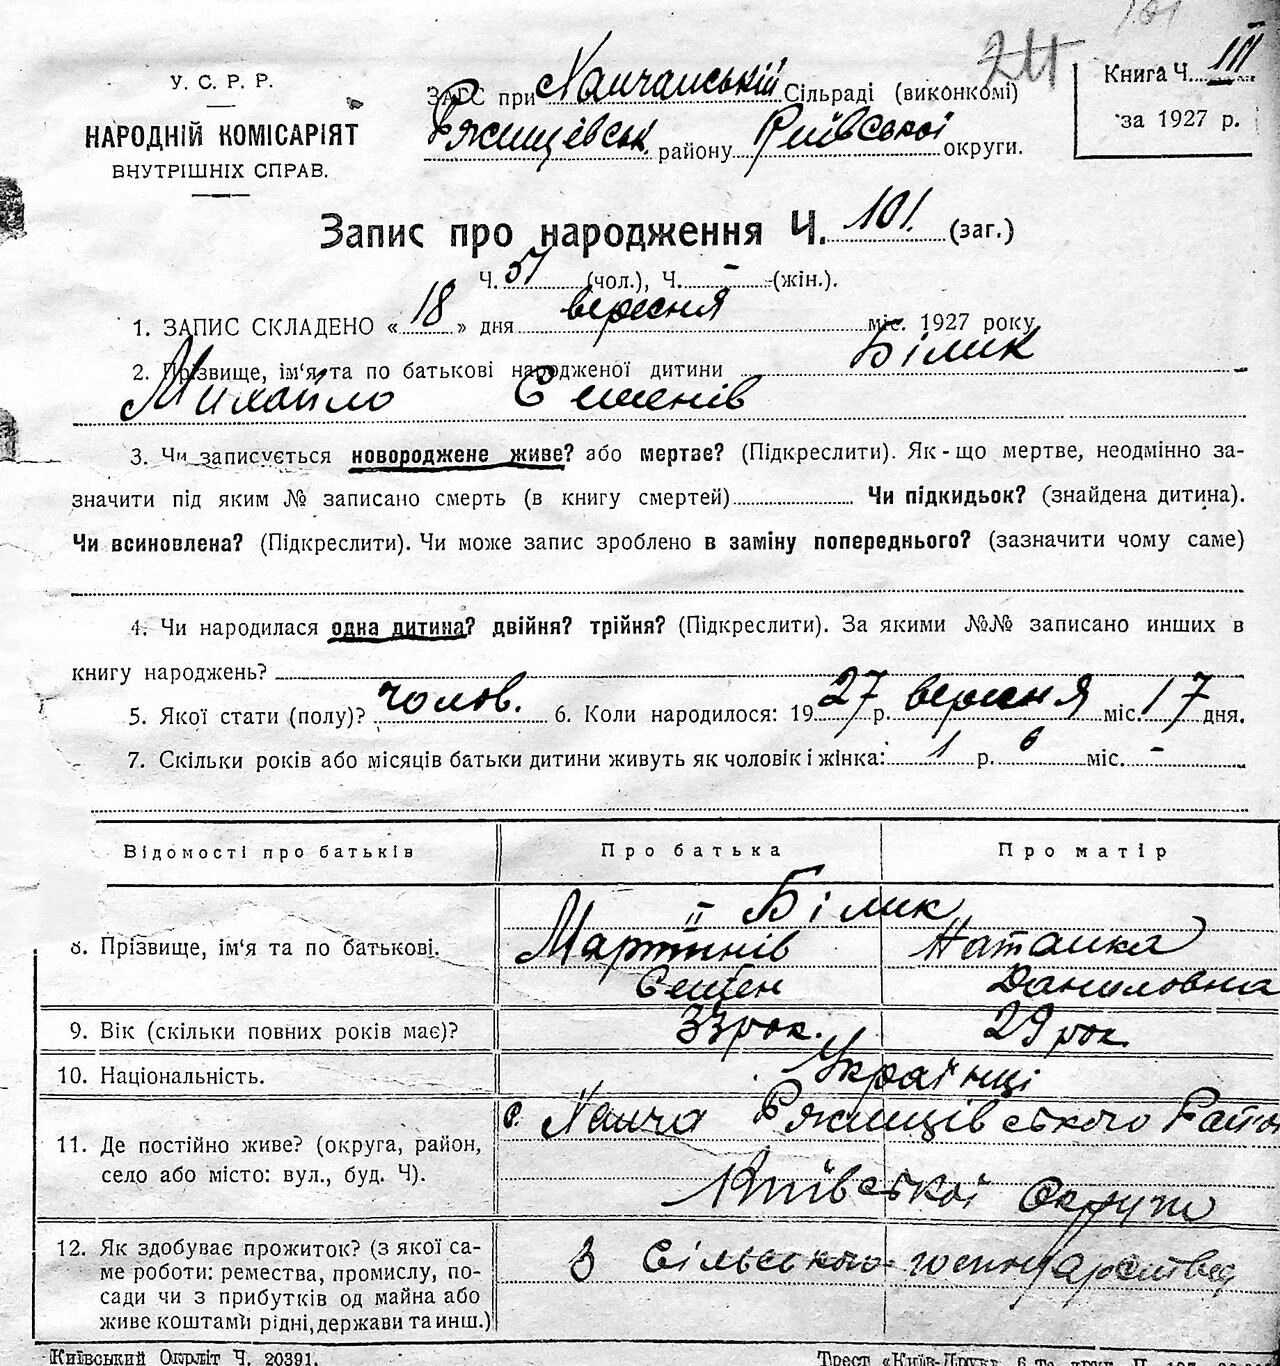 101
24
У. С. Р. Р.
НАРОДНІЙ КОМІСАРІЯТ
ВНУТРІШНІХ СПРАВ.
ЗАГС при Ханчанській Сільраді (виконкомі)
Ржищівськ. району Київської округи.
Книга Ч. III
за 1927 р.
Запис про народження Ч. 101. (заг.)
Ч. 51 (чол.), Ч. - (жін.).
1. ЗАПИС СКЛАДЕНО « 18 » дня вересня міс. 1927 року
2. Прізвище, ім'я та по батькові народженої дитини Білик
Михайло Семенів
3. Чи записується новороджене живе? або мертве? (Підкреслити). Як-що мертве, неодмінно за-
значити під яким № записано смерть (в книгу смертей) Чи підкидьок? (знайдена дитина).
Чи всиновлена? (Підкреслити). Чи може запис зроблено в заміну попереднього? (зазначити чому саме)
4. Чи народилася одна дитина? двійня? трійня? (Підкреслити). За якими №№ записано инших в
книгу народжень?
5. Якої стати (полу)? чолов. 6. Коли народилося: 19 27 р. вересня міс. 17 дня.
7. Скільки років або місяців батьки дитини живуть як чоловік і жінка: 1 р. 6 міс. -
Відомості про батьків Про батька Про матір
8. Прізвище, ім'я та по батькові. Білик
Мартинів Наталка
Семен Даниловна
9. Вік (скільки повних років має)? 33 рок. 29 рок
10. Національність. Українці
11. Де постійно живе? (округа, район, село або місто: вул., буд. Ч). с. Ханча Ржищівського Район
Київської Округи
12. Як здобуває прожиток? (з якої са-
ме роботи: ремества, промислу, по-
сади чи з прибутків од майна або
живе коштами рідні, держави та инш.) З сільського господарства
Київський Окрліт Ч. 20391.
Трест «Київ-Друк»